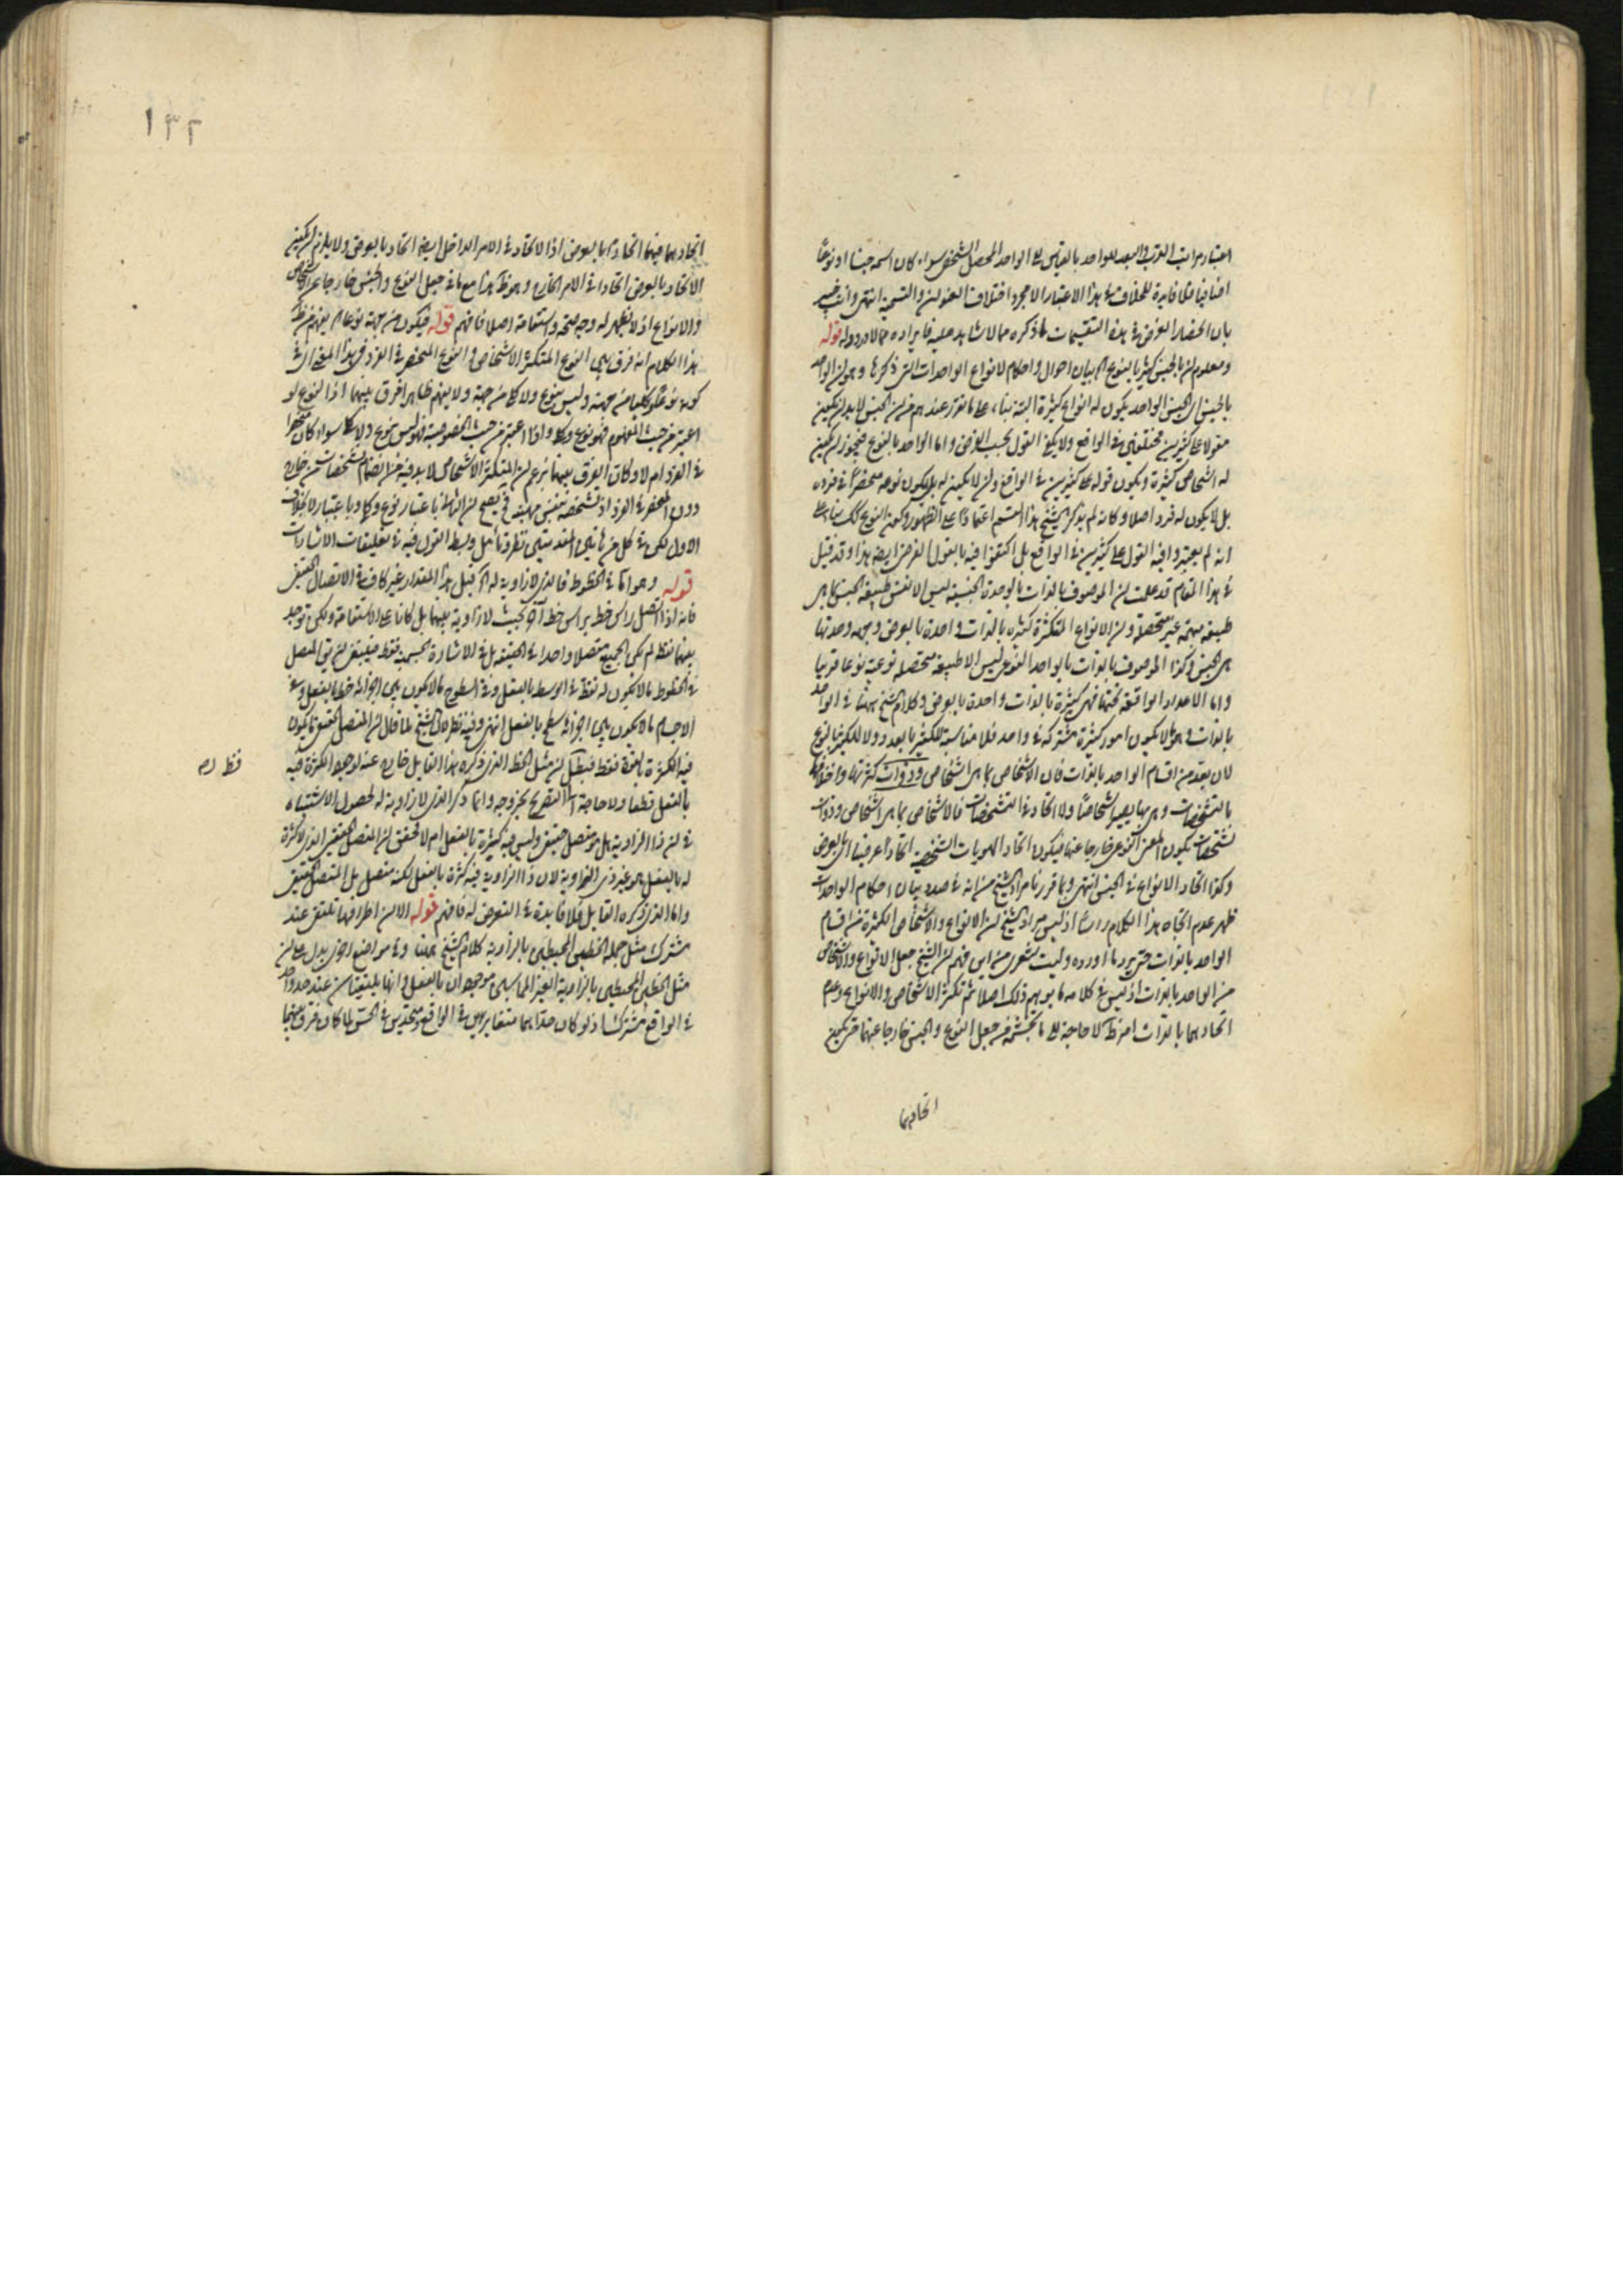 اعتبار مراتب القرب والبعد للواحد بالقياس الى الواحد المحصل الشخصى سواء كان اسمه جنسا او نوعا
اضافيا فلا فايدة للخلاف فى هذا الاعتبار الا مجرد اختلاف العنوان والتسمية انتهى وانت خبير
بان انحصار الغرض فى هذه التقسيمات لما ذكره مما لا شاهد عليه فايراده مما لا ورود له قوله
ومعلوم ان بالجنس كثير بالنوع اى بيان احوال واحكام لانواع الواحدات التى ذكرها وهو ان الواحد
بالجنس اى الجنس الواحد يكون له انواع كثيرة البتة بناء على ما تقرر عندهم من ان الجنس لابد ان يكون
مقولا على كثيرين مختلفين فى الواقع ولا يكفى القول بحسب الفرض واما الواحد بالنوع فيجوز ان يكون
له اشخاص كثيرة ويكون قوله على كثيرين فى الواقع وان لا يكون له بل يكون نوعه منحصرا فى فرده
بل لا يكون له فرد اصلا وكانه لم يذكر الشيخ هذا القسم اعتمادا على الظهور وكون النوع كك بناء على
انه لم يعتبروا فيه القول على كثيرين فى الواقع بل اكتفوا فيه بالقول الفرضى ايضا هذا وقد قيل
فى هذا المقام قد علمت ان الموصوف بالذات بالوحدة الجنسية ليس الا نفس طبيعة الجنس بما هى
طبيعة مبهمة غير متحصلة وان الانواع المتكثرة كثيرة بالذات واحدة بالعرض وجهة وحدتها
هى الجنس وكذا الموصوف بالذات بالواحد النوعى ليس الا طبيعة متحصلة نوعية نوعا قريبا
واما الاعداد الواقعة تحتها فهى كثيرة بالذات واحدة بالعرض وكلام الشيخ ههنا فى الواحد
بالذات وهو لا يكون امور كثيرة مشتركة فى واحد فلا مناسبة للكثير بالعدد ولا للكثير بالنوع
لان يعد من اقسام الواحد بالذات فان الاشخاص بما هى اشخاص وذوات كثرتها واختلافها
بالتشخصات وهى بها يصير اشخاصا ولا اتحاد فى التشخصات فالاشخاص بما هى اشخاص وذوات
تشخصات يكون المعنى النوعى خارجا عنها فيكون اتحاد الهويات الشخصية اتحادا عرضيا اى بالعرض
وكذا اتحاد الانواع فى الجنس انتهى وبما قررنا مراد الشيخ من انه فى صدد بيان احكام الواحدات
ظهر عدم اتجاه هذا الكلام راسا اذ ليس مراد الشيخ ان الانواع والاشخاص الكثيرة من اقسام
الواحد بالذات حتى يرد ما اورده وليت شعرى من اين فهم ان الشيخ جعل الانواع والاشخاص
من الواحد بالذات اذ ليس فى كلامه ما يوهم ذلك اصلا ثم تكثر الاشخاص والانواع وعدم
اتحادهما بالذات امر ظ لا حاجة الى ما تجشمه من جعل النوع والجنس خارجا عنهما حتى يكون
اتحادهما
١٣٢
اتحادهما فيهما اتحادا بالعرض اذ الاتحاد فى الامر الداخل ايضا اتحاد بالعرض ولا يلزم ان يكون
الاتحاد بالعرض اتحادا فى الامر الخارج وهو ظ هذا مع ما فى جعل النوع والجنس خارجا عن الاشخاص
والانواع اذ لا يظهر له وجه صحة واستقامة اصلا فافهم قوله فيكون من جهة نوعا يفهم من
هذا الكلام انه فرق بين النوع المتكثر الاشخاص والنوع المنحصر فى الفرد فى هذا المعنى اى فى
كونه نوعا وكليا من جهة وليس بنوع ولا كلى من جهة ولا يفهم ظاهرا فرق بينهما اذ النوع لو
اعتبر من حيث المفهوم فهو نوع وكلى واذا اعتبر من حيث الخصوصية فهو ليس بنوع ولا كلى سواء كان منحصرا
فى الفرد ام لا وكان الفرق بينهما بزعم ان المتكثر الاشخاص لا بد فيه من انضمام تشخصات من خارج
دون المنحصر فى الفرد اذ تشخصه بنفس مهيته فح يصح ان الثانى باعتبار نوع وكلى وباعتبار لا بخلاف
الاول لكن فى كل من هاتين المقدمتين نظر وتامل وبسط القول فيه فى تعليقات الاشارات
قوله وهو اما فى الخطوط فالذى لا زاوية له قيل هذا المقدار غير كاف فى الاتصال الحقيقى
فانه اذا اتصل راس خط براس خط آخر بحيث لا زاوية بينهما بل كانا على الاستقامة ولكن توجد
بينهما نقط لم يكن الجميع متصلا واحدا فى الحقيقة بل فى الاشارة الحسية فقط فينبغى ان يق المتصل
فى الخطوط ما لا يكون له نقط فى الوسط بالفعل وفى السطوح ما لا يكون بين اجزائه خط بالفعل وفى
الاجسام ما لا يكون بين اجزائه سطح بالفعل انتهى وفيه نظر لان الشيخ لما قال ان المتصل الحقيقى ما يكون
فيه الكثرة بالقوة فقط فيظهر ان مثل الخط الذى ذكره هذا القايل خارج عنه لوجود الكثرة فيه
فقط رم
بالفعل قطعا ولا حاجة الى التصريح بخروجه وانما ذكر الذى لا زاوية له لحصول الاشتباه
فى ان ذا الزاوية هل هو متصل حقيقى وليس فيه كثيرة بالفعل ام لا فحقق ان المتصل الحقيقى الذى لا كثرة
له بالفعل هو غير ذى الزاوية لان ذا الزاوية فيه كثرة بالفعل لكنه متصل بل المتصل الحقيقى
واما الذى ذكره القايل فلا فايدة فى التعرض له فافهم قوله الا ان اطرافها تلتقى عند
مشترك مثل جملة الخطين المحيطين بالزاوية كلام الشيخ ههنا وفى مواضع اخرى يدل على ان
مثل الخطين المحيطين بالزاوية الغير المماسين موجودان بالفعل وانهما يلتقيان عند حد واحد
فى الواقع مشتركا اذ لو كان حداهما متغايرين فى الواقع متحدين فى الحس لما كان فرق بينهما